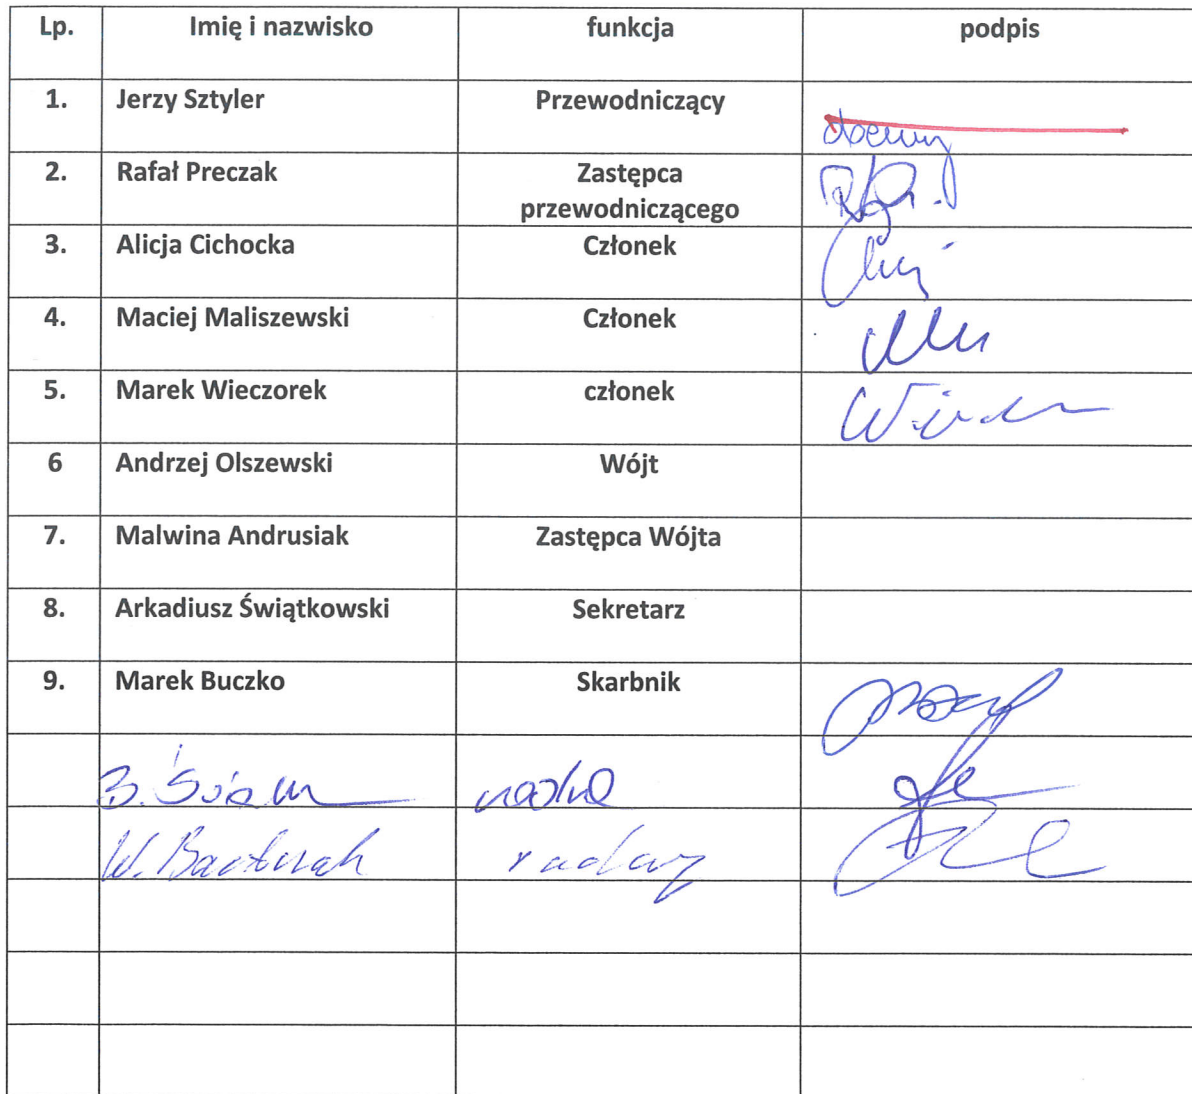 Lp. Imię i nazwisko funkcja podpis
1. Jerzy Sztyler Przewodniczący
obecny
2. Rafał Preczak Zastępca
przewodniczącego
3. Alicja Cichocka Członek
4. Maciej Maliszewski Członek
5. Marek Wieczorek członek
6 Andrzej Olszewski Wójt
7. Malwina Andrusiak Zastępca Wójta
8. Arkadiusz Świątkowski Sekretarz
9. Marek Buczko Skarbnik
B. radna
W. radny